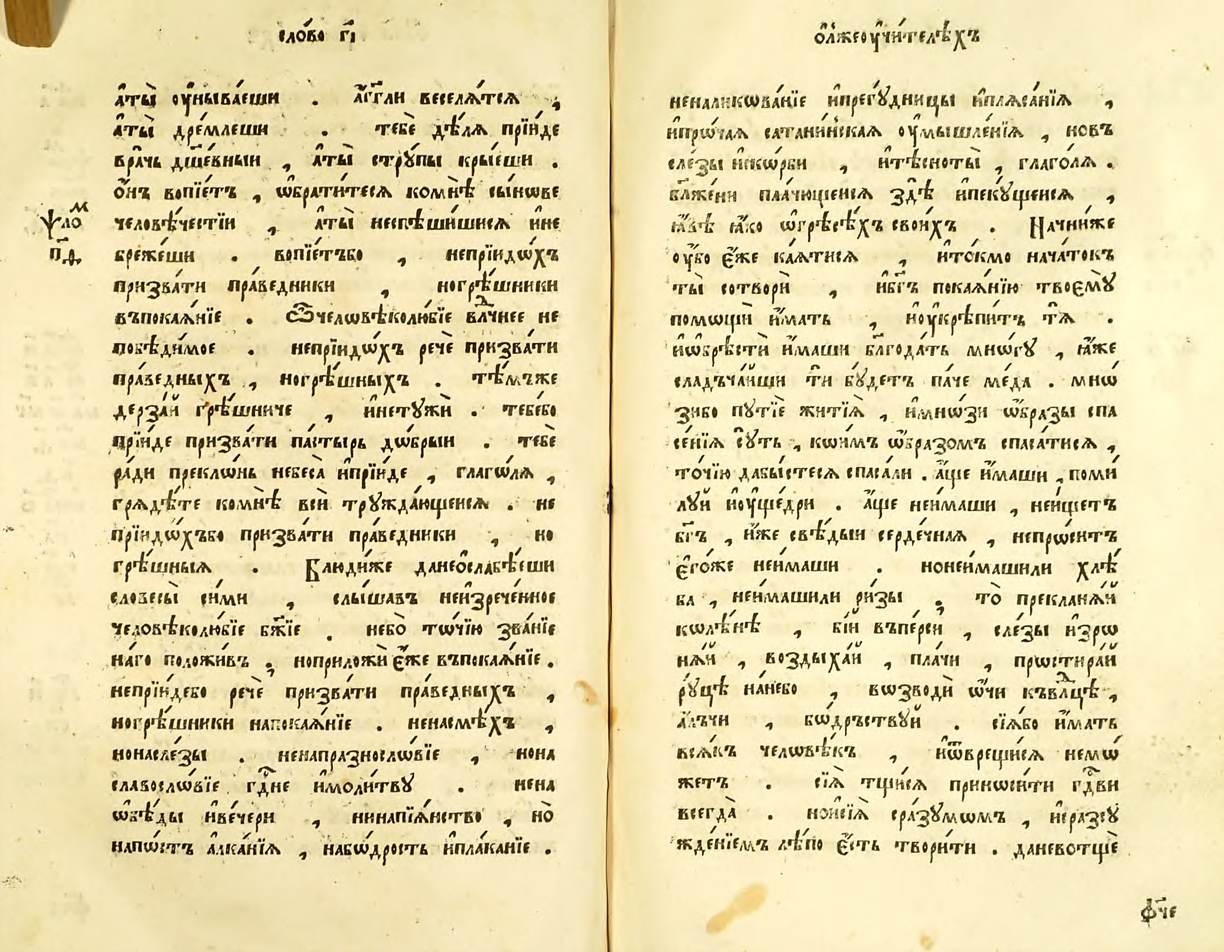 сло́во г҃і
а҆ты̀ ᲂу҆ныва́еши . а҆́гг҃ли веселѧ́тсѧ ,
а҆ты̀ дре́млеши . тебѐ дѣ́лѧ прїи́де
вра́чь дш҃е́вныи , а҆ты̀ стрꙋ́пы кры́еши .
ѻ҆́нъ вопїе́тъ , ѡ҆брати́тесѧ комнѣ̀ сы́нове
ѱало м
человѣ́честїи , а҆ты̀ неспѣши́шисѧ и҆не
п҃д.
бреже́ши . вопїе́тъбо , непрїидо́хъ
призва́ти пра́ведники , ногрѣ́шники
въпокаѧ́нїе . Ѽчеловѣколю́бїе влⷣчнее не
побѣди́мое . непрїидѡ́хъ речѐ призва́ти
пра́ведныхъ , ногрѣ́шныхъ . тѣ́мъже
дерза́й грѣ́шниче , и҆нетꙋжѝ . тебе́бо
прїи́де призва́ти па́стырь дѡ́брыи . тебѐ
ра́ди преклѡ́нь небеса̀ и҆прїи́де , глаго́лѧ ,
грѧдѣ́те комнѣ̀ всѝ трꙋжда́ющеисѧ . не
прїидѡ́хъбо призва́ти пра́ведники , но
грѣ́шныѧ . Блюди́же данеѻ҆слабѣ́еши
словесы̀ си́ми , слы́шавъ неизрече́нное
человѣколю́бїе бж҃їе . небѻ̀ то́чїю зва́нїе
на́го положи́въ , ноприложѝ є҆́же въпокаѧ́нїе .
непрїи́дебо речѐ призва́ти пра́ведныхъ ,
ногрѣ́шники напокаѧ́нїе . ненасмѣ́хъ ,
нонасле́зы . ненапразносло́вїе , нона
славосло́вїе гдⷭ҇не и҆моли́твꙋ . нена
ѡ҆бѣ́ды и҆ве́чери , нинапїѧ́нство , но̀
напо́стъ а҆лка́нїѧ , набо́дрость и҆пла́канїе .
ѻ҆́лжеᲂу҆чи́телѣхъ
неналикова́нїе и҆прегꙋ́дницы и҆плѧса́нїѧ ,
и҆про́чаѧ сатани́нскаѧ ᲂу҆мышле́нїѧ , новъ
сле́зы и҆ско́рби , и҆тѣсноты̀ , глаго́лѧ .
бл҃же́ни пла́чющеисѧ здѣ̀ и҆пекꙋ́щеисѧ ,
ꙗ҆́вѣ ꙗ҆́ко ѡ҆грѣсѣ́хъ свои́хъ . Начни́же
ᲂу҆́бо є҆́же ка́ѧтисѧ , и҆то́кмо нача́токъ
ты̀ сотворѝ , и҆бг҃ъ покаѧ́нїю твоемꙋ̀
помощѝ и҆́мать , и҆ᲂу҆крѣпи́тъ тѧ̀ .
и҆ѡ҆брѣстѝ и҆́маши бл҃года́ть мно́гꙋ , ꙗ҆́же
сладъча́йши тѝ бꙋ́детъ па́че ме́да . мнѡ
зибо пꙋтїѐ житїѧ̀ , и҆мно́зи ѡ҆́бразы спа
се́нїѧ сꙋ́ть , ко́имъ ѡ҆́бразомъ спаса́тисѧ ,
то́чїю дабы́стесѧ спасали . а҆́ще и҆́маши , поми
лꙋ́й и҆ᲂу҆ще́дри . а҆́ще неи́маши , неи́щетъ
бг҃ъ , и҆́же свѣ́дыи серде́чнаѧ , непро́ситъ
є҆го́же неи́маши . нонеи́машили хлѣ́
ба , неи́машили ри́зы , то̀ прекланѧ́й
колѣ́нѣ , бі́й въпе́рси , сле́зы и҆зрѡ
нѧ́й , воздыха́й , пла́чи , простира́й
рꙋ́цѣ на́небо , возводѝ ѡ҆́чи къвлⷣцѣ ,
а҆́лъчи , бо́дръствꙋй . сїѧ́бо и҆́мать
всѧ́къ человѣ́къ , и҆ѿврещи́сѧ немо́
жетъ . сїѧ̀ тщи́сѧ приноси́ти гдⷭ҇ви
всегда̀ . но̀исїѧ̀ сра́зꙋмомъ , и҆сразсꙋ
жде́нїемъ лѣ́по є҆́сть твори́ти . даневотщѐ
ѿче